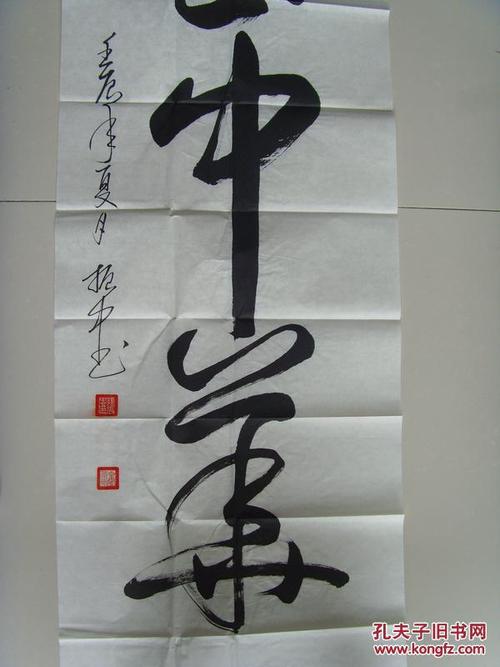 中華
壬辰年夏月 振中书
孔夫子旧书网
www.kongfz.com